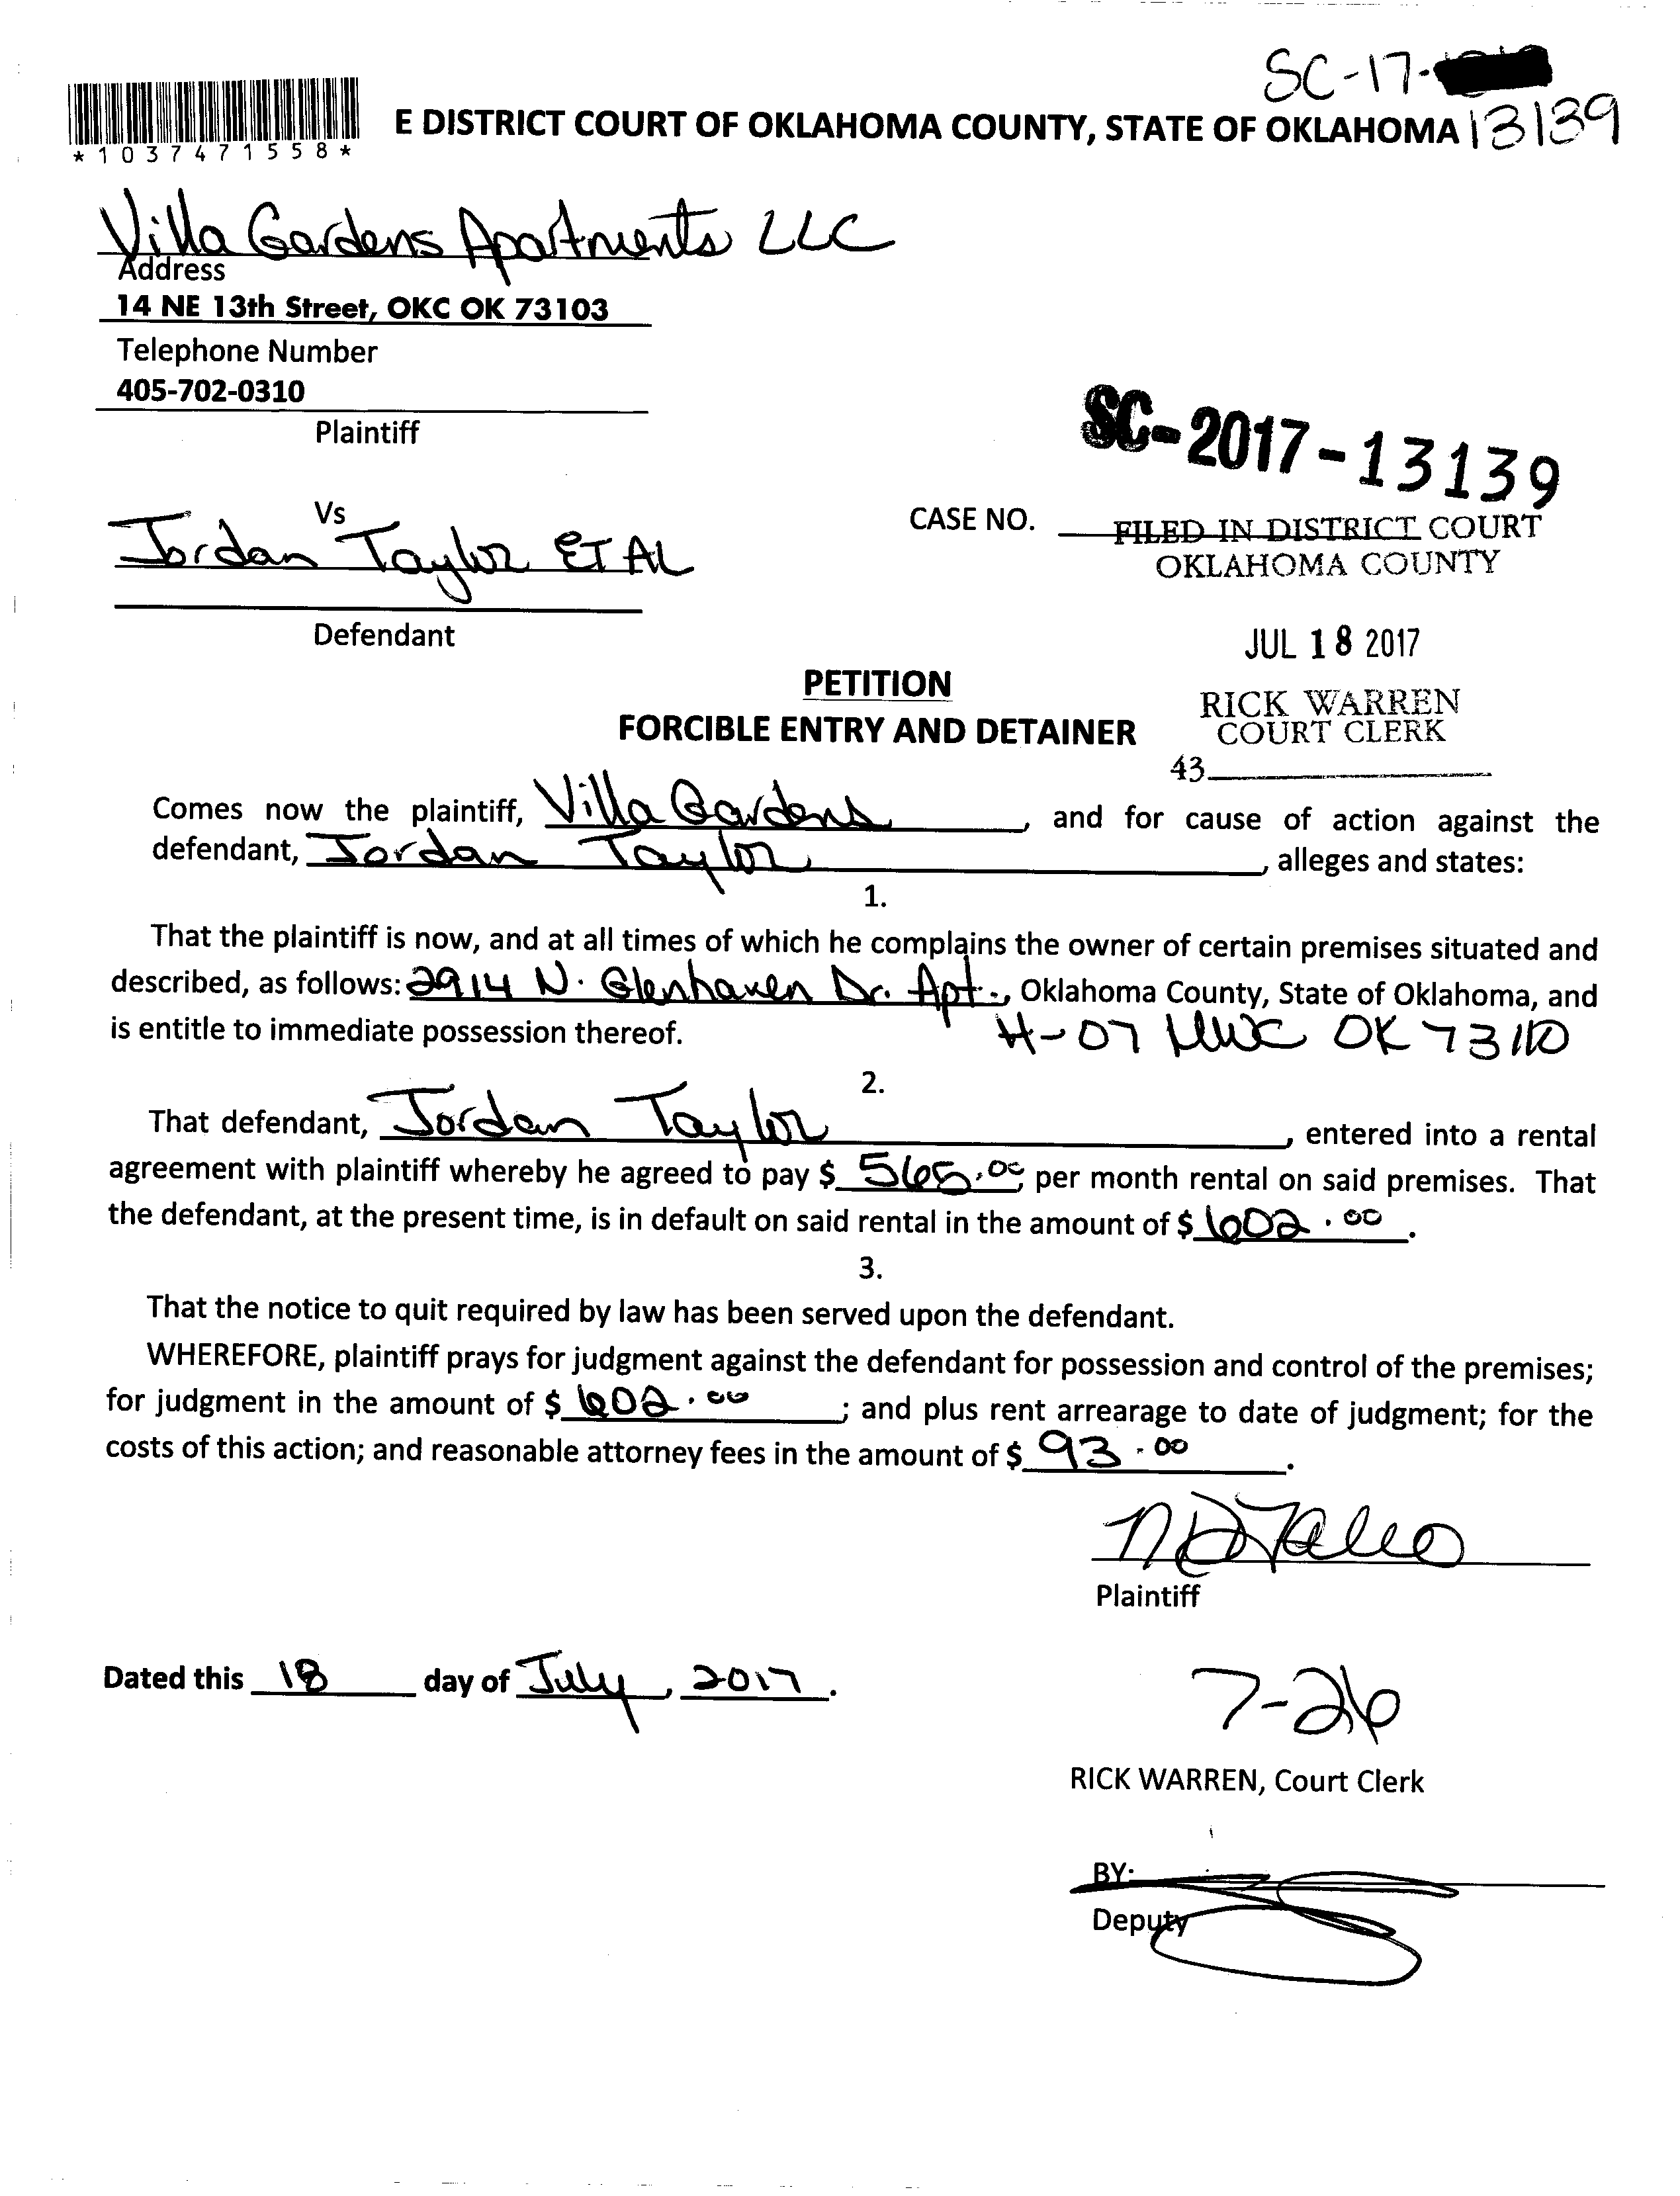 SC-17-
*1037471558*
E DISTRICT COURT OF OKLAHOMA COUNTY, STATE OF OKLAHOMA 13139
Villa Gardens Apartments LLC
Address
14 NE 13th Street, OKC OK 73103
Telephone Number
405-702-0310
Plaintiff
SC-2017-13139
Vs
CASE NO.
FILED IN DISTRICT COURT
OKLAHOMA COUNTY
Jordan Taylor ET AL
Defendant
JUL 18 2017
PETITION
RICK WARREN
COURT CLERK
FORCIBLE ENTRY AND DETAINER
43
Comes now the plaintiff, Villa Gardens, and for cause of action against the
defendant, Jordan Taylor, alleges and states:
1.
That the plaintiff is now, and at all times of which he complains the owner of certain premises situated and
described, as follows: 2914 N. Glenhaven Dr. Apt., Oklahoma County, State of Oklahoma, and
is entitle to immediate possession thereof. H-07 MWC OK 73110
2.
That defendant, Jordan Taylor, entered into a rental
agreement with plaintiff whereby he agreed to pay $ 565.00 per month rental on said premises. That
the defendant, at the present time, is in default on said rental in the amount of $ 602.00.
3.
That the notice to quit required by law has been served upon the defendant.
WHEREFORE, plaintiff prays for judgment against the defendant for possession and control of the premises;
for judgment in the amount of $ 602.00; and plus rent arrearage to date of judgment; for the
costs of this action; and reasonable attorney fees in the amount of $ 93.00.
Plaintiff
Dated this 18 day of July, 2017.
7-26
RICK WARREN, Court Clerk
BY:
Deputy